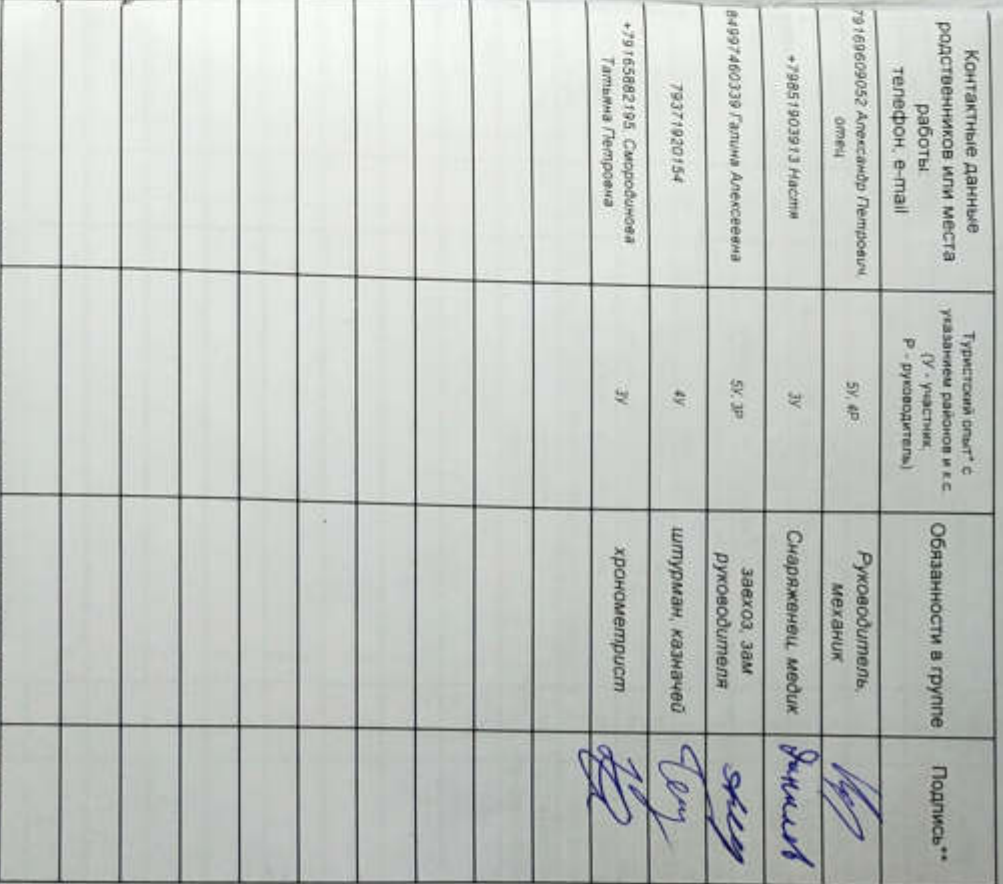 Контактные данные
родственников или места
работы
телефон, e-mail
Туристский опыт* с
указанием районов и к.с.
(У - участник,
Р - руководитель)
Обязанности в группе
Подпись**
79169609052 Александр Петрович,
отец
5У, 4Р
Руководитель,
механик
+79851903913 Настя
3У
Снаряженец, медик
84997460339 Галина Алексеевна
5У, 3Р
завхоз, зам
руководителя
79371920154
4У
штурман, казначей
+79165882195. Смородинова
Татьяна Петровна
3У
хронометрист